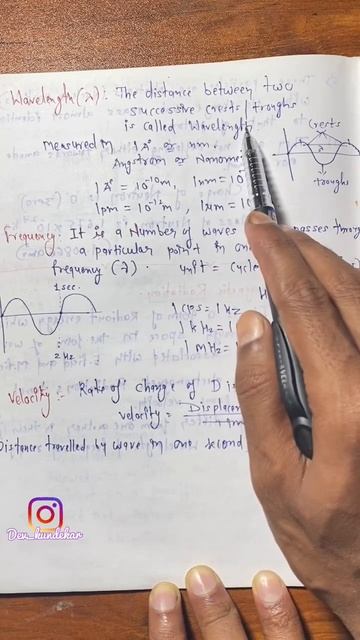 Wavelength (λ) : The distance between two
successive crests / troughs
is called Wavelength
(rests
λ
troughs
Measured in 1A° or nm
Angstrom or Nanome
1A° = 10⁻¹⁰m, 1nm = 10
1pm = 10⁻¹²m, 1μm = 10
Frequency: It is a Number of waves passes throu
a particular point in one
frequency (λ). unit = cycle
1 sec.
2 Hz
1 cps = 1 Hz
1 kHz = 1
1 MHz = 1
Velocity :- Rate of Change of D is
velocity = Displacem
Distance travelled by wave in one second
Dev_kundekar